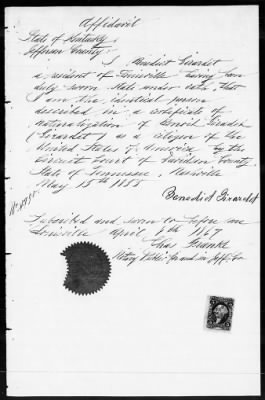 Affidavit
State of Kentucky
Jefferson County
I Benedict Girardet
a resident of Louisville having been
duly sworn state under oath, that
I am the identical person
described in a certificate of
naturalization of
(Girardet) as a citizen of the
United States of America by the
Circuit Court of Davidson County
State of Tennessee, Nashville
May 15th 1855
Benedict Girardet
Subscribed and sworn to before me
Louisville April 6th 1867
Chas
Notary Public for and in Jeff. Co